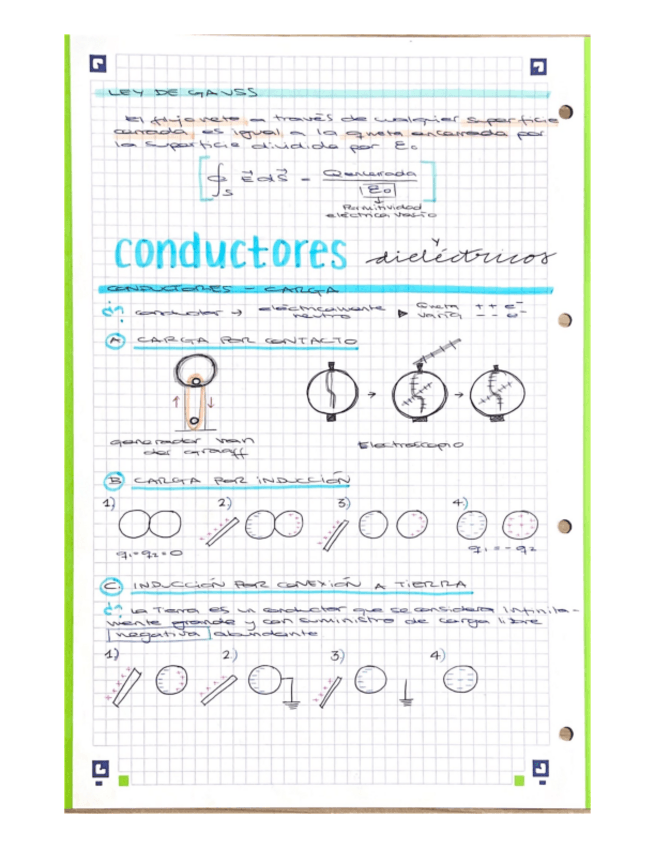 LEY DE GAUSS
El flujo neto a través de cualquier superficie
cerrada es igual a la q neta encerrada por
la superficie dividida por ε₀
∮s E⃗ dS⃗ = Qencerrada / ε₀
Permitividad
eléctrica vacío
conductores y dieléctricos
CONDUCTORES - CARGA
conductor → eléctricamente neutro ▶ Gana ++ e⁻
-- e⁻
A CARGA POR CONTACTO
generador van der graaff
Electroscopio
B CARGA POR INDUCCIÓN
1) 2) 3) 4)
q₁=q₂=0
q₁=-q₂
C. INDUCCIÓN POR CONEXIÓN A TIERRA
La Tierra es un conductor que se considera infinita-
mente grande y con suministro de carga libre
negativa abundante
1) 2) 3) 4)